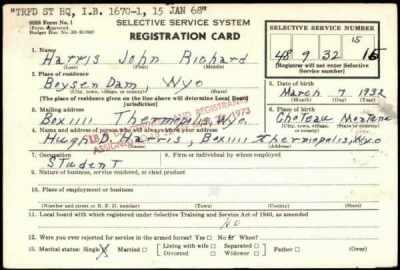 "TRFD ST HQ, I.B. 1670-1, 15 JAN 68"
SSS Form No. 1
(Form Approved.
SELECTIVE SERVICE SYSTEM
REGISTRATION CARD
SELECTIVE SERVICE NUMBER
15
48 9 32 15
(Registrar will not enter Selective
Service number)
1. Name
Harris John Richard
(Last) (First) (Middle)
2. Place of residence
Boysen Dam, Wyo
(City, town, village, or county) (State)
[The place of residence given on the line above will determine Local Board
jurisdiction]
5. Date of birth
March 7 1932
(Month) (Day) (Year)
3. Mailing address
Box 1111 Thermopolis, Wyo.
6. Place of birth
Choteau Montana
(City, town, village, (State or
or county) country)
4. Name and address of person who will always know your address
Hugh Harris, Box 1111 Thermopolis, Wyo
AND REGISTRANTS
1973
7. Occupation
Student
8. Firm or individual by whom employed
9. Nature of business, service rendered, or chief product
10. Place of employment or business
(Number and street or R. F. D. number) (City, town, village, or county) (State)
11. Local board with which registered under Selective Training and Service Act of 1940, as amended
No
12. Were you ever rejected for service in the armed forces? Yes □ No □ When?
13. Marital status: Single X Married □ Living with wife □ Separated □ Father □ (Over)
Divorced □ Widower □